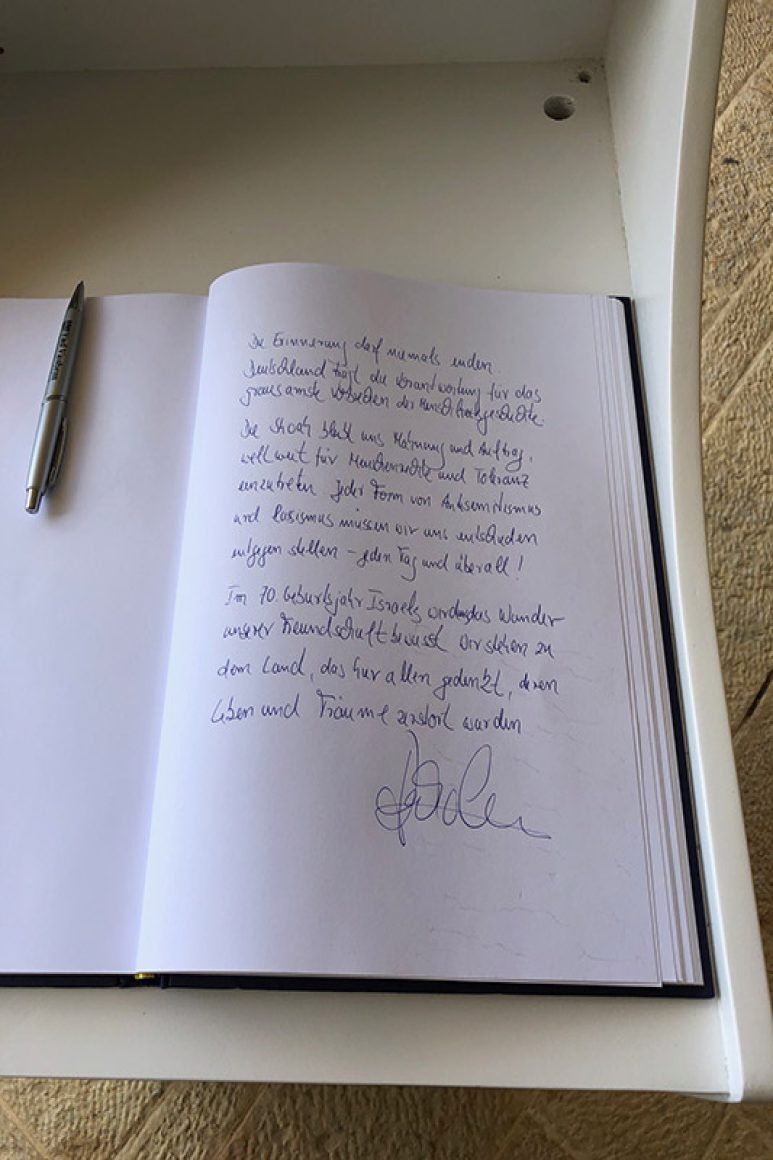 Die Erinnerung darf niemals enden.
Deutschland trägt die Verantwortung für das
grausamste Verbrechen der Menschheitsgeschichte.
Die Shoah bleibt uns Mahnung und Auftrag,
weltweit für Menschenrechte und Toleranz
einzutreten. Jeder Form von Antisemitismus
und Rassismus müssen wir uns entschieden
entgegen stellen – jeden Tag und überall!
Im 70. Geburtsjahr Israels wird uns das Wunder
unserer Freundschaft bewusst. Wir stehen zu
dem Land, das hier allen gedenkt, deren
Leben und Träume zerstört wurden